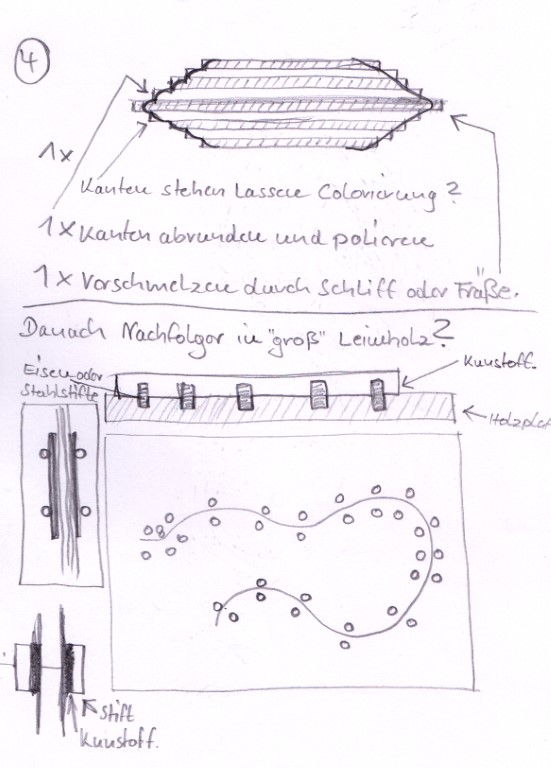 4
1x
Kanten stehen lassen Colorierung?
1x Kanten abrunden und polieren
1x Vorschmelzen durch Schliff oder Fräße.
Danach Nachfolgor in "groß" Leimholz?
Eisen oder
Stahlstifte
Kunstoff.
Holzplat
Stift
Kunstoff.